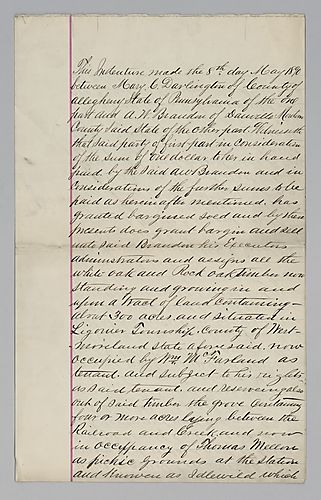 This Indenture made the 8th day May 1880
between Mary C. Darlington of County of
allegheny State of Pennsylvania of the one
part and A. W. Brandon of Danville Montour
County Said State of the other part Witnesseth
that Said party of first part in Consideration
of the Sum of One dollar to her in hand
paid by the Said A W Brandon and in
Considerations of the further Sums to be
paid as herein after mentioned, has
granted bargined soed and by these
presents does grant bargin and sell
unto Said Brandon his Executors
administrators and assigns all the
white oak and Rock oak timber now
Standing and growing in and
upon a Tract of land Containing
about 300 acres and Situated in
Ligonier Township, County of West-
moreland State afore said, now
occupied by Wm. McFarland as
tenant. and Subject to his rights
as Said tenant. and reserving also
out of Said timber the grove Containing
four or more acres lying between the
Railroad and Creek, and now
in occupancy of Thomas Mellon
as picnic Grounds at the Station
and Known as Idlewild which